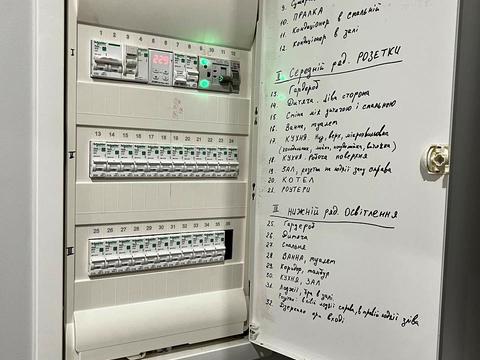 1 2 3 4 5 6 7 8 9 10 11 12
223
13 14 15 16 17 18 19 20 21 22 23 24
25 26 27 28 29 30 31 32 33 34 35 36
10. ПРАЛКА
11. Кондиціонер в спальній
12. Кондиціонер в залі
II Середній ряд. РОЗЕТКИ
13. Гардероб
14. Дитяча. Ліва сторона
15. Стіна між дитячою і спальнею
16. Ванна, туалет
17. КУХНЯ.
18. КУХНЯ. Робоча поверхня
19. ЗАЛ, розетки на лоджії залу справа
20. КОТЕЛ
21. РОУТЕРИ
III НИЖНІЙ ряд. Освітлення
25. Гардероб
26. Дитяча
27. Спальня
28. ВАННА, туалет
29. Коридор, тамбур
30. КУХНЯ, ЗАЛ
31. Лоджії, в залі.
справа, в правій лоджії зліва
32. Дзеркало при вході